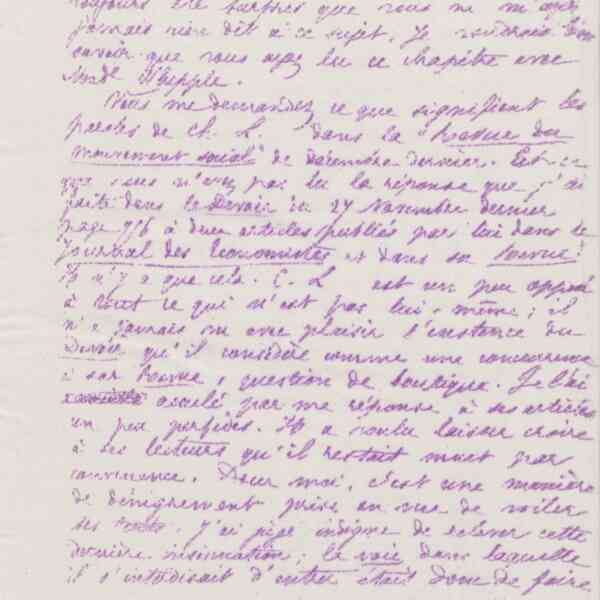 toujours été surpris que vous ne m'ayez
jamais rien dit à ce sujet. Je voudrais bien
savoir que vous avez lu ce chapitre avec
Whipple.
Vous me demandez ce que signifient les
paroles de Ch. L. dans la "Revue du
mouvement social" de décembre dernier. Est-ce
que vous n'avez pas lu la réponse que j'ai
faite dans le Devoir du 27 Novembre dernier
page 716 à deux articles publiés par lui dans le
Journal des Economistes et dans sa Revue?
Il n'y a que cela. C. L. est un peu opposé
à tout ce qui n'est pas lui-même; il
n'a jamais vu avec plaisir l'existence du
Devoir qu'il considère comme une concurrence
à sa Revue, question de boutique. Je l'ai
acculé par ma réponse à ses articles
un peu perfides. Il a voulu laisser croire
à ses lecteurs qu'il restait muet par
convenance. Pour moi, c'est une manière
de dénigrement prise en vue de voiler
ses torts. J'ai jugé indigne de relever cette
dernière insinuation; la voie dans laquelle
il s'interdisait d'entrer était donc de faire